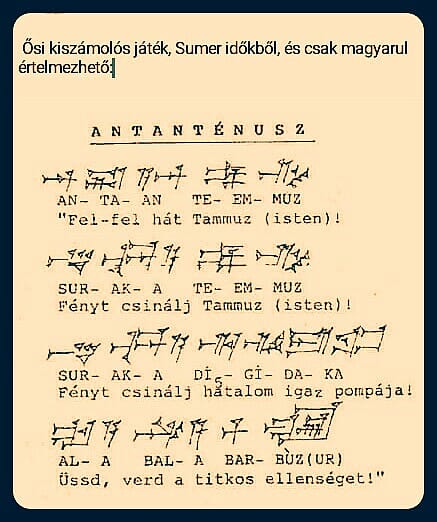 Ősi kiszámolós játék, Sumer időkből, és csak magyarul
értelmezhető:
ANTANTÉNUSZ
AN- TA- AN TE- EM- MUZ
"Fel-fel hát Tammuz (isten)!
SUR- AK- A TE- EM- MUZ
Fényt csinálj Tammuz (isten)!
SUR- AK- A DİŞ- GÌ- DA- KA
Fényt csinálj hatalom igaz pompája!
AL- A BAL- A BAR- BÙZ(UR)
Üssd, verd a titkos ellenséget!"